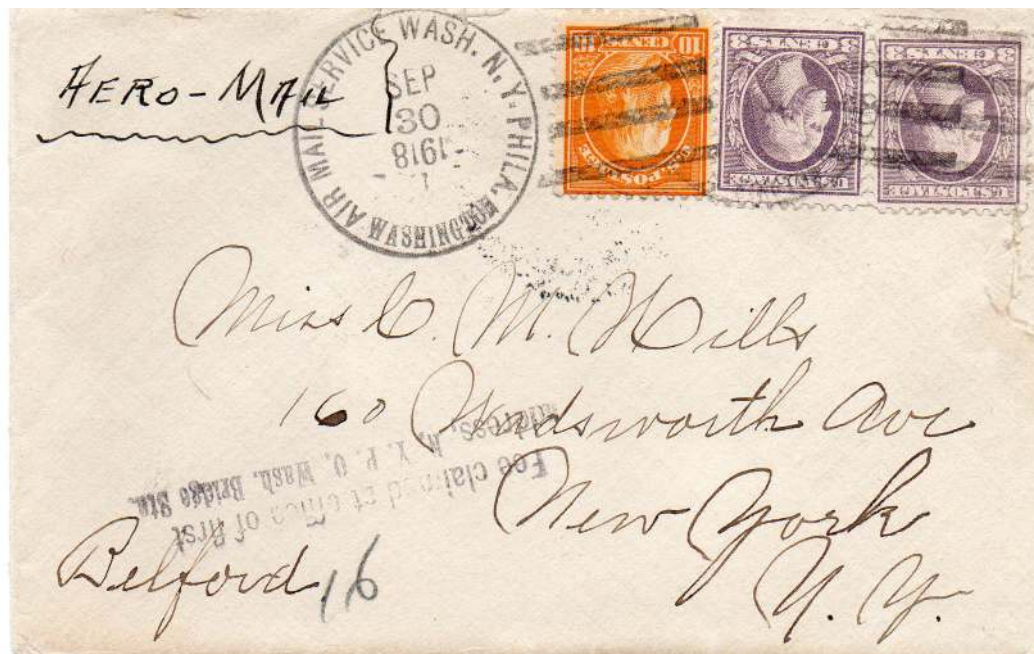 AERO-MAIL
AIR MAIL SERVICE WASH. N.Y. PHILA.
SEP
30
1918
WASHINGTON
10 CENTS 10
U.S. POSTAGE
3 CENTS 3
U.S. POSTAGE
3 CENTS 3
U.S. POSTAGE
Miss C. M. Hills
160 Wadsworth Ave
New York
N. Y.
Fee claimed at office of first
address, N. Y. P. O. Wash. Bridge Sta.
Belford
16